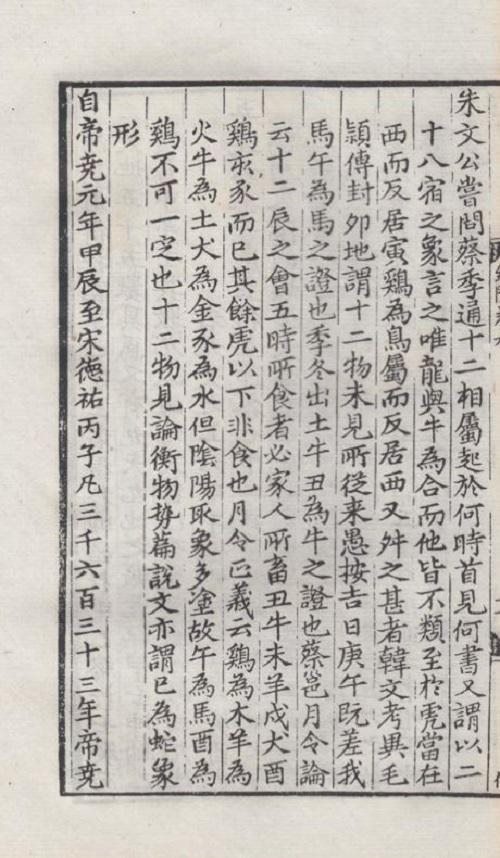 朱文公嘗問蔡季通十二相屬起於何時首見何書又謂以二
十八宿之象言之唯龍與牛為合而他皆不類至於虎當在
西而反居寅鷄為鳥屬而反居西又舛之甚者韓文考異毛
穎傳封卯地謂十二物未見所從来愚按吉日庚午既差我
馬午為馬之證也季冬出土牛丑為牛之證也蔡邕月令論
云十二辰之會五時所食者必家人所畜丑牛未羊戌犬酉
鷄亥豕而已其餘虎以下非食也月令正義云鷄為木羊為
火牛為土犬為金豕為水但陰陽取象多塗故午為馬酉為
鷄不可一定也十二物見論衡物势篇說文亦謂巳為蛇象
形
自帝尭元年甲辰至宋徳祐丙子凡三千六百三十三年帝尭